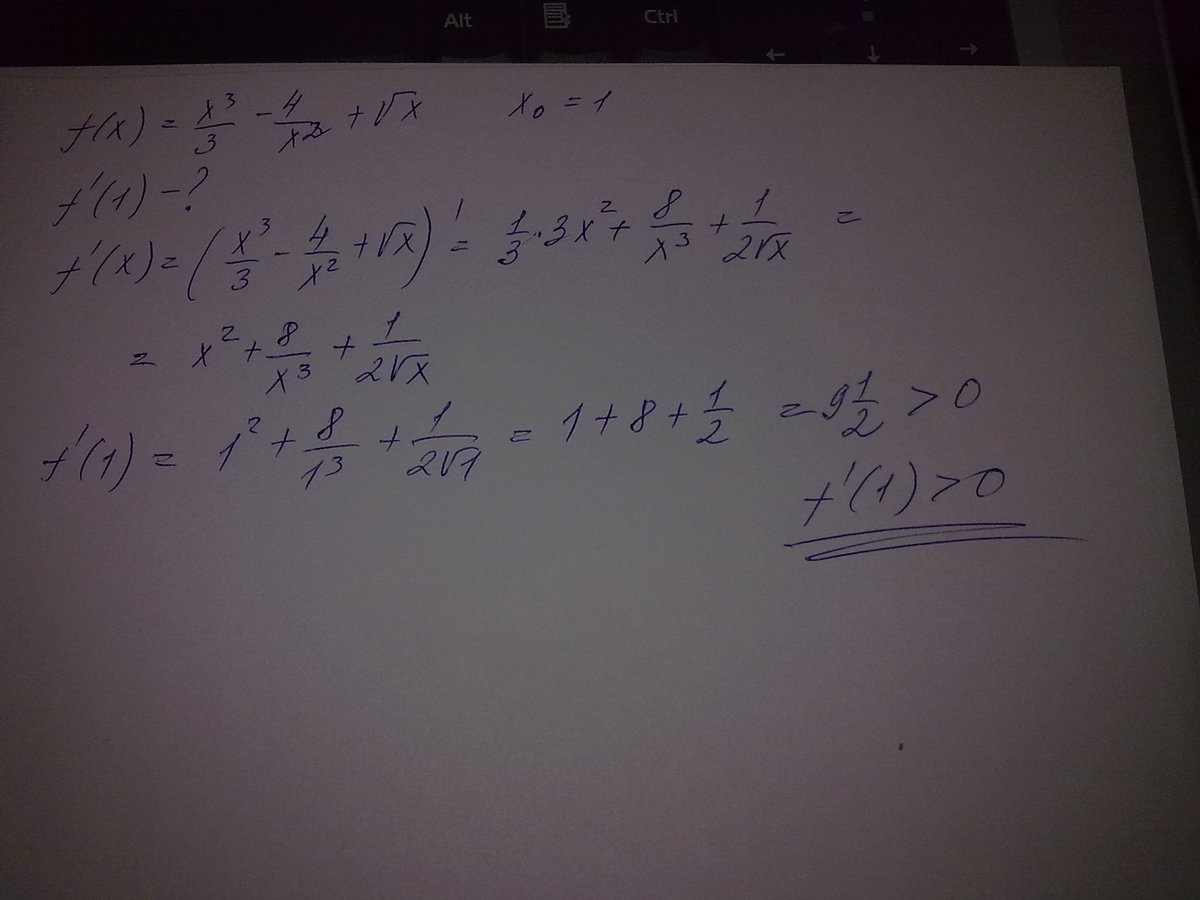 Alt Ctrl
← ↓ →
f(x) = x³/3 - 4/x² + √x x₀ = 1
f'(1) - ?
f'(x) = (x³/3 - 4/x² + √x)' = 1/3 · 3x² + 8/x³ + 1/2√x =
= x² + 8/x³ + 1/2√x
f'(1) = 1² + 8/1³ + 1/2√1 = 1 + 8 + 1/2 = 9 1/2 > 0
f'(1) > 0